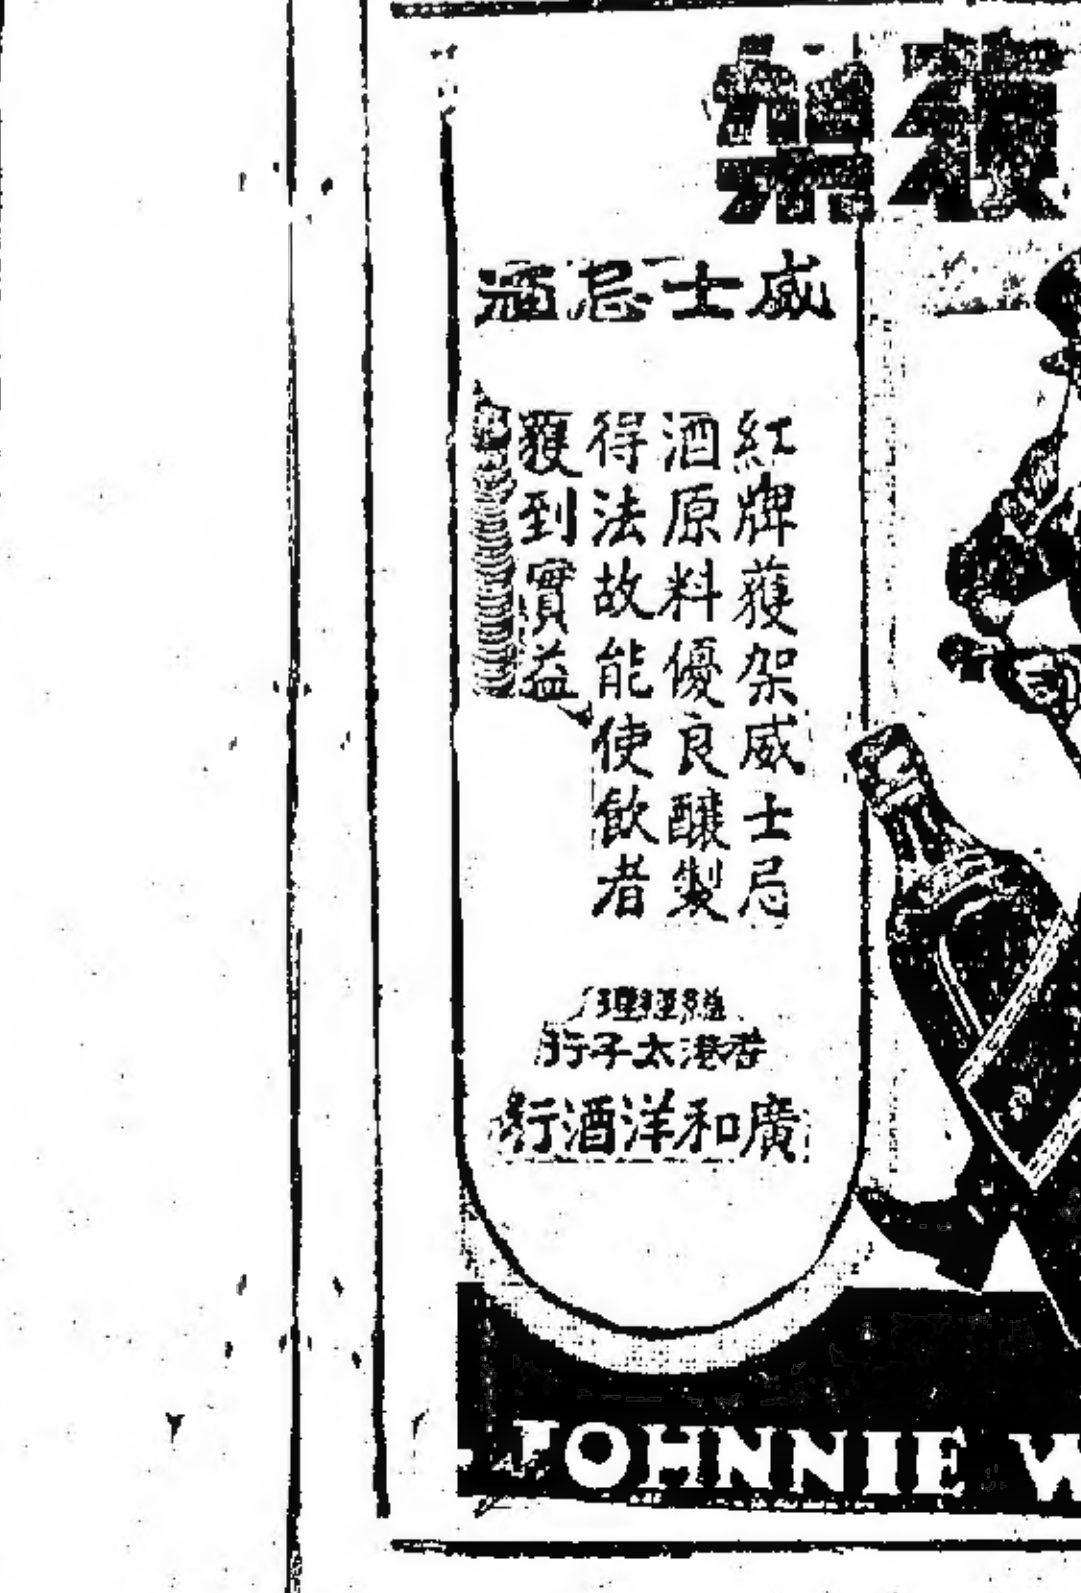 獲架
威士忌酒
紅牌獲架威士忌
酒原料優良釀製
得法故能使飲者
獲到實益
總經理
香港太子行
廣和洋酒行
JOHNNIE W